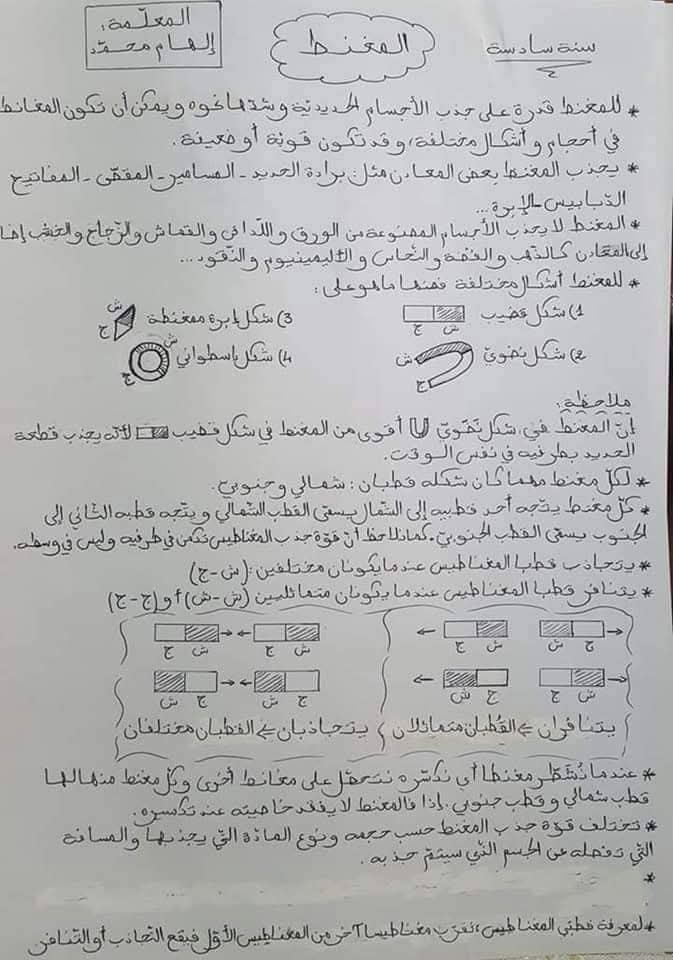 سنة سادسة
المغنط
المعلّمة:
إلهام محمّد
* للمغنط قدرة على جذب الأجسام الحديديّة وشدّها نحوه ويمكن أن تكون المغانط
في أحجام وأشكال مختلفة، وقد تكون قويّة أو ضعيفة.
* يجذب المغنط بعض المعادن مثل: برادة الحديد - المسامير - المقصّ - المفاتيح
الدّبابيس - الإبرة...
* المغنط لا يجذب الأجسام المصنوعة من الورق و اللّدائن و القماش و الزّجاج و الخشب إضافة
إلى المعادن كالذهب و الفضّة و النّحاس و الأليمينيوم و النّقود...
* للمغنط أشكال مختلفة فمنها ما هو على:
1) شكل قضيب
ج ش
3) شكل إبرة ممغنطة
ش
ج
2) شكل نضويّ
ش
ج
4) شكل أسطواني
ش
ج
ملاحظة:
إنّ المغنط في شكل نَضَويّ أقوى من المغنط في شكل قضيب لأنّه يجذب قطعة
الحديد بطرفيه في نفس الوقت.
* لكلّ مغنط مهما كان شكله قطبان: شمالي وجنوبيّ.
* كلّ مغنط يتّجه أحد قطبيه إلى الشّمال يسمّى القطب الشّمالي و يتّجه قطبه الثّاني إلى
الجنوب يسمّى القطب الجنوبيّ. كما نلاحظ أنّ قوّة جذب المغناطيس تكمن في طرفيه وليس في وسطه.
* يتجاذب قطبا المغناطيس عندما يكونان مختلفين: (ش - ج)
* يتنافر قطبا المغناطيس عندما يكونان متماثلين (ش-ش) أو (ج-ج)
ج ش ج ش
ج ش ش ج
ش ج ش ج
ش ج ج ش
يتنافران ⇐ القُطبان متماثلان
يتجاذبان ⇐ القطبان مختلفان
* عندما نُشَطِّر مغنطا أي نكسّره نتحصّل على مغانط أخرى وكلّ مغنط منها لها
قطب شمالي و قطب جنوبي. إذا فالمغنط لا يفقد خاصيته عند تكسيره.
* تختلف قوّة جذب المغنط حسب حجمه ونوع المادّة التّي يجذبها والمسافة
التّي تفصله عن الجسم الذّي سيتمّ جذبه.
*
* لمعرفة قطبي المغناطيس، نقرّب مغناطيسا آخر من المغناطيس الأوّل فيقع التّجاذب أو التّنافر